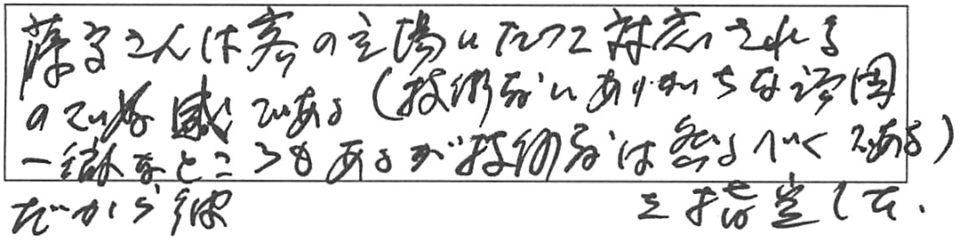 藤家さんは客の立場にたって対応される
ので好感である(技術屋にありがちな
一徹なところもあるが技術屋は然るべくである)
だから彼 を指定した.